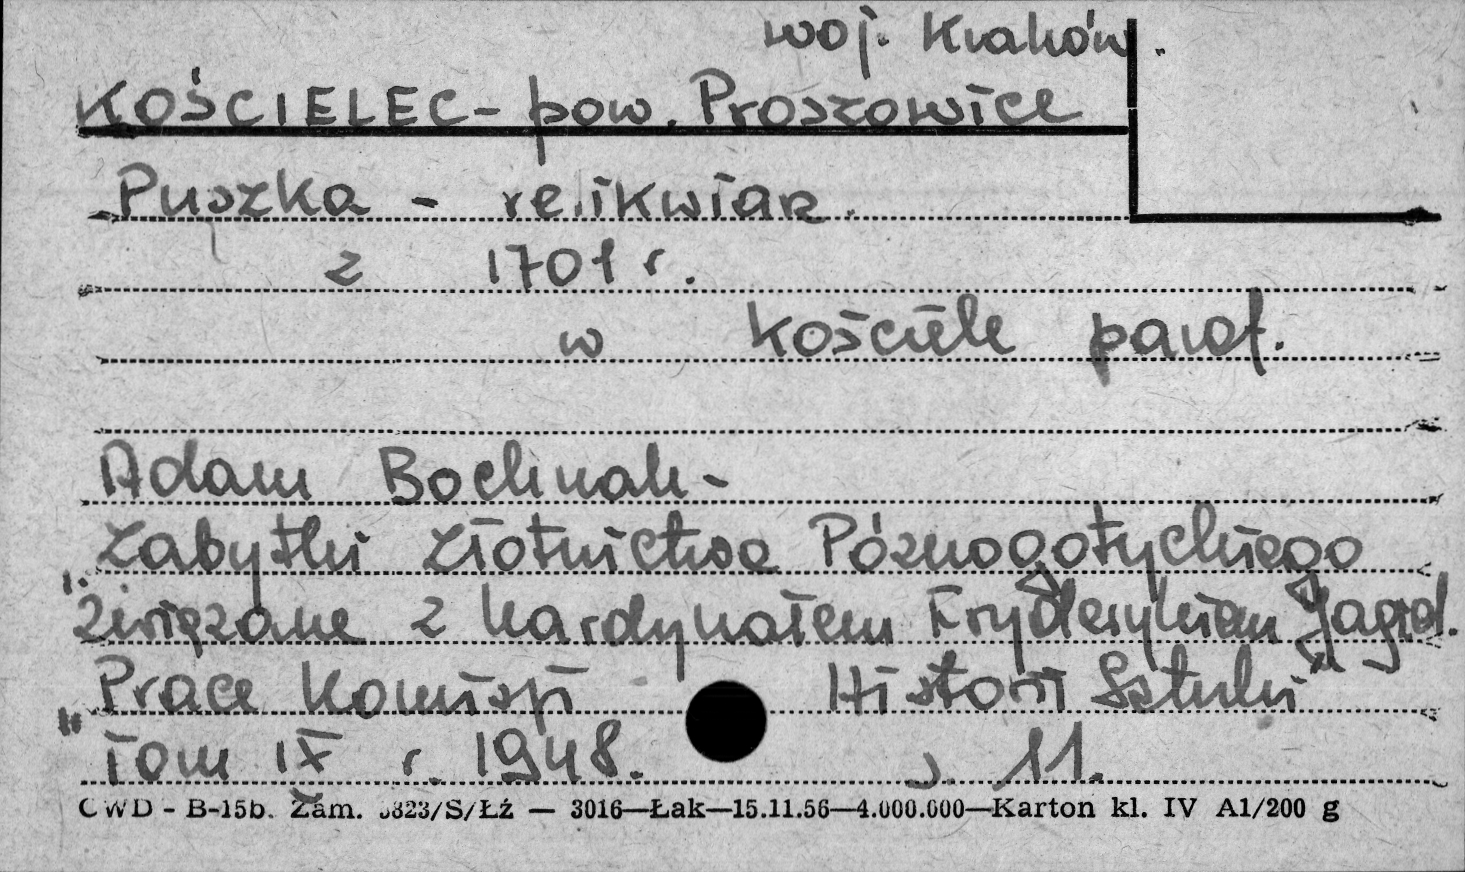 woj. Kraków.
KOŚCIELEC - pow. Proszowice
Puszka - relikwiarz.
z 1701 r.
w kościele paraf.
Adam Bochnak -
Zabytki złotnictwa Późnogotyckiego
związane z kardynałem Fryderykiem Jagiel.
"Prace Komisji Historii Sztuki"
Tom IX r. 1948. s. 11.
CWD - B-15b. Zam. 5823/S/Łź — 3016—Łak—15.11.56—4.000.000—Karton kl. IV A1/200 g